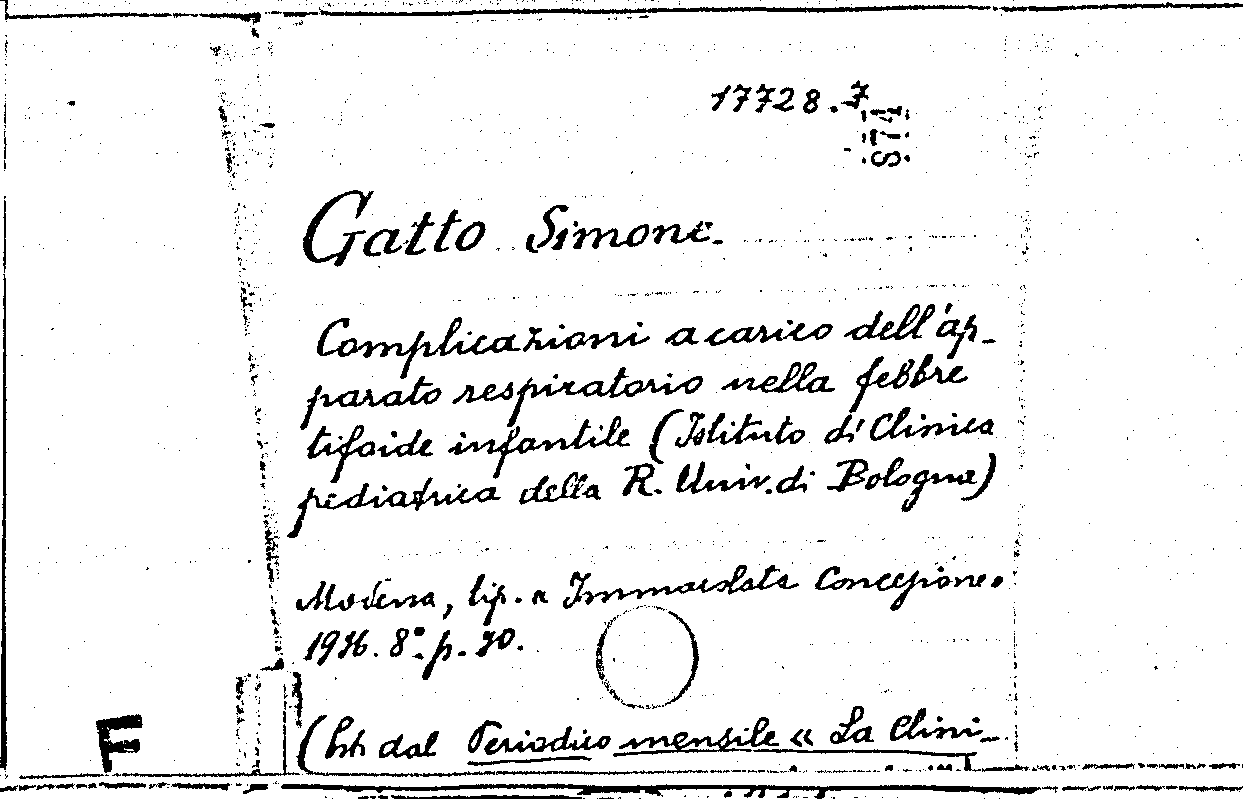 17728.7
S74
Gatto Simone.
Complicazioni a carico dell'ap-
parato respiratorio nella febbre
tifoide infantile (Istituto di Clinica
pediatrica della R. Univ. di Bologna)
Modena, tip. "Immacolata Concezione"
8° p.
(Estr. dal Periodico mensile « La Clini-
F